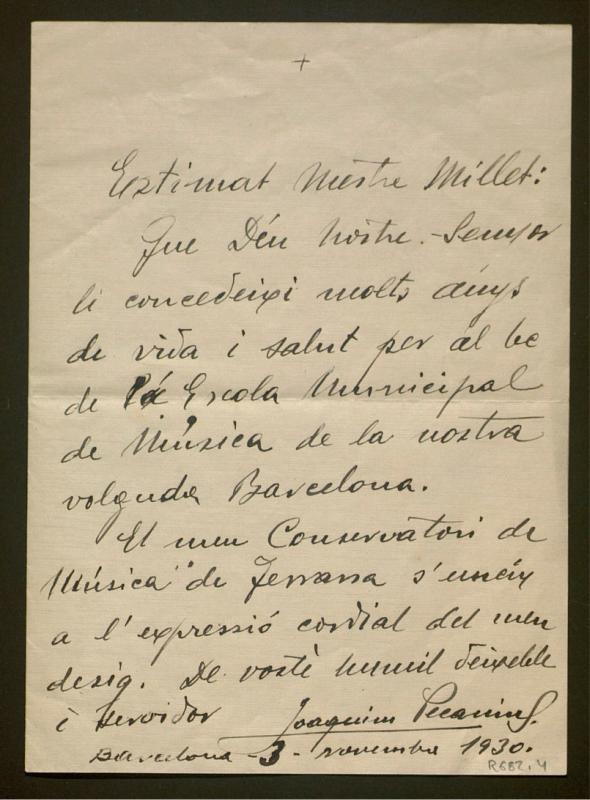 +
Estimat Mestre Millet:
Que Déu Nostre Senyor
li concedeixi molts anys
de vida i salut per al be
de l'Escola Municipal
de Música de la nostra
volguda Barcelona.
El meu Conservatori de
Música de Terrassa s'uneix
a l'expressió cordial del meu
desig. De vostè humil deixeble
i servidor Joaquim Pecanins.
Barcelona -3- novembre 1930.
R682.4